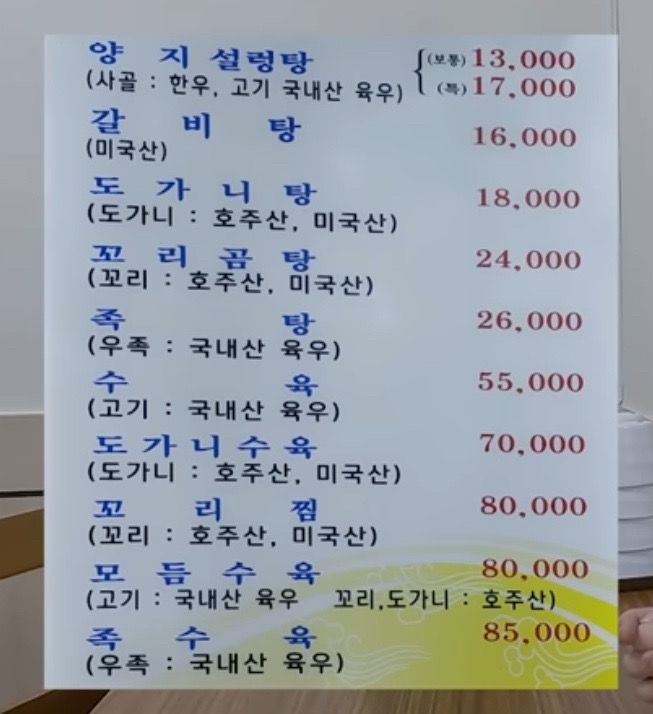 양지설렁탕 (보통) 13,000
(사골 : 한우, 고기 국내산 육우) (특) 17,000
갈비탕 16,000
(미국산)
도가니탕 18,000
(도가니 : 호주산, 미국산)
꼬리곰탕 24,000
(꼬리 : 호주산, 미국산)
족탕 26,000
(우족 : 국내산 육우)
수육 55,000
(고기 : 국내산 육우)
도가니수육 70,000
(도가니 : 호주산, 미국산)
꼬리찜 80,000
(꼬리 : 호주산, 미국산)
모듬수육 80,000
(고기 : 국내산 육우 꼬리,도가니 : 호주산)
족수육 85,000
(우족 : 국내산 육우)